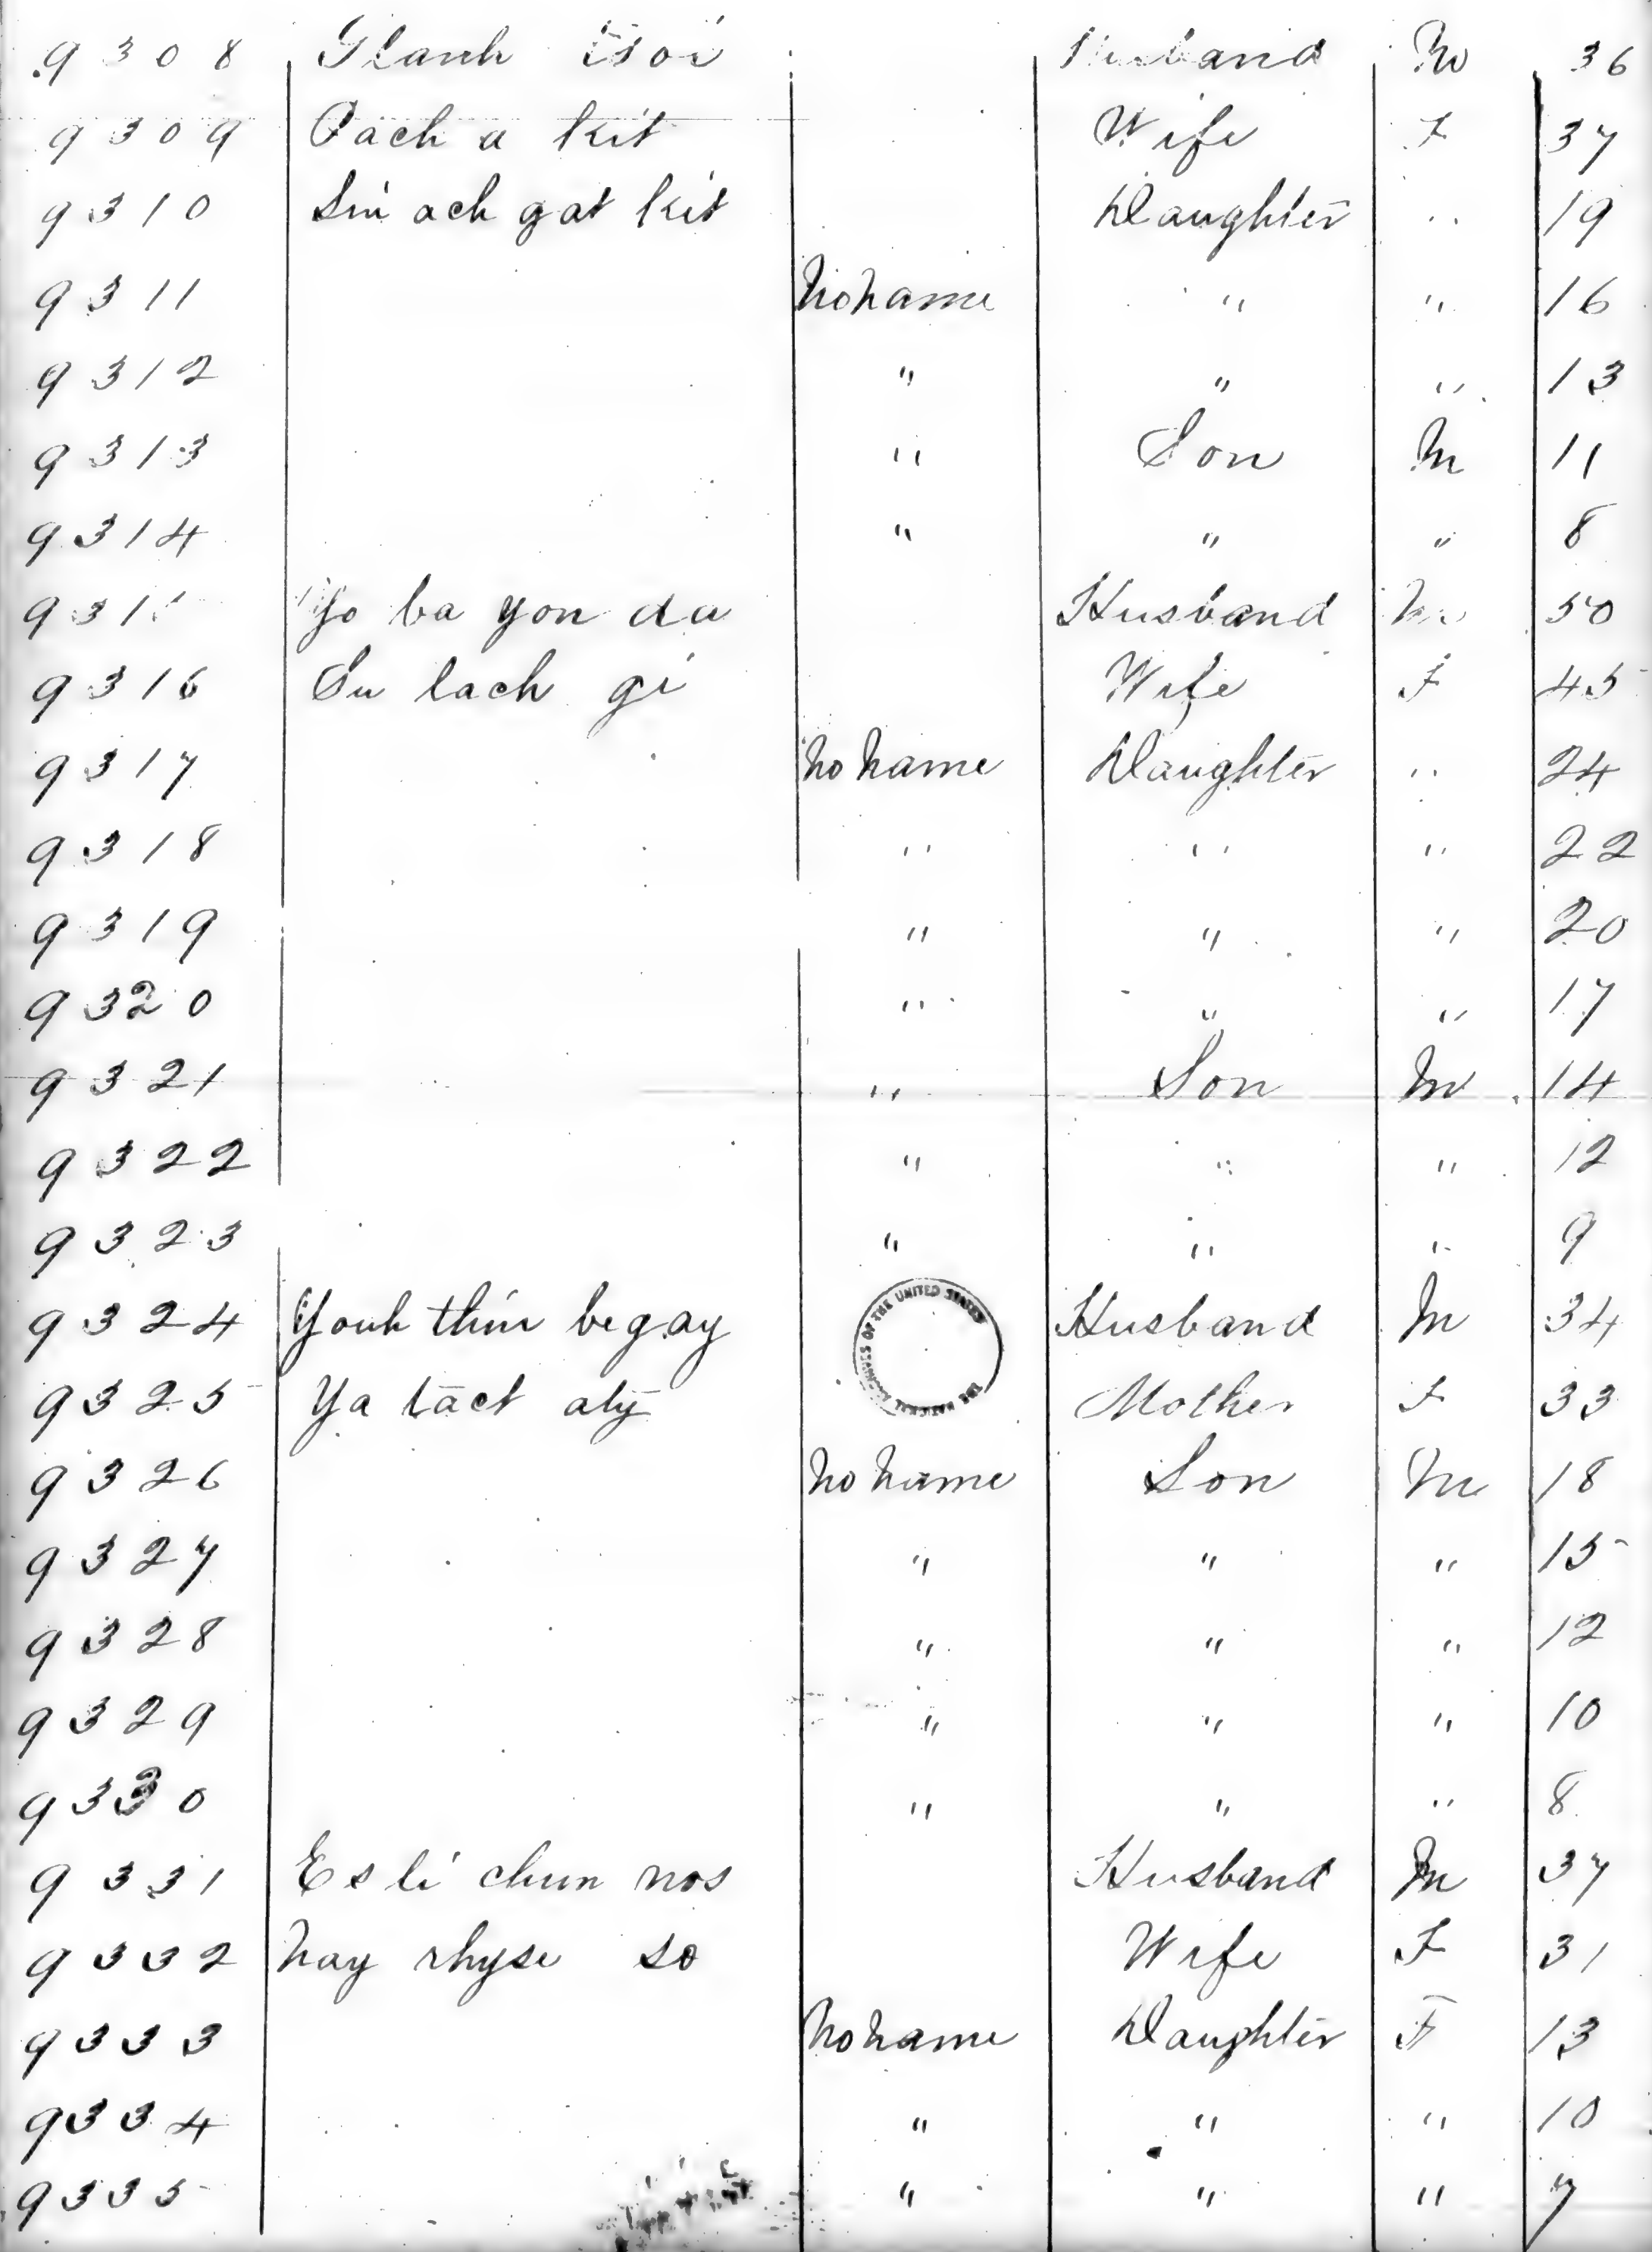 9308 Glanh tsoi Husband M 36
9309 Pach a kit Wife F 37
9310 Sin ach gat kit Daughter " 19
9311 No name " " 16
9312 " " " 13
9313 " Son M 11
9314 " " " 8
931 Yo ba yon da Husband M 50
9316 Su lach gi Wife F 45
9317 No name Daughter " 24
9318 " " " 22
9319 " " " 20
9320 " " " 17
9321 " Son M 14
9322 " " " 12
9323 " " " 9
9324 Youh thin begay Husband M 34
THE NATIONAL ARCHIVES OF THE UNITED STATES
9325 Ya tact aty Mother F 33
9326 No name Son M 18
9327 " " " 15
9328 " " " 12
9329 " " " 10
9330 " " " 8
9331 Es li chun nos Husband M 37
9332 Nay rhyse so Wife F 31
9333 No name Daughter F 13
9334 " " " 10
9335 " " " 7